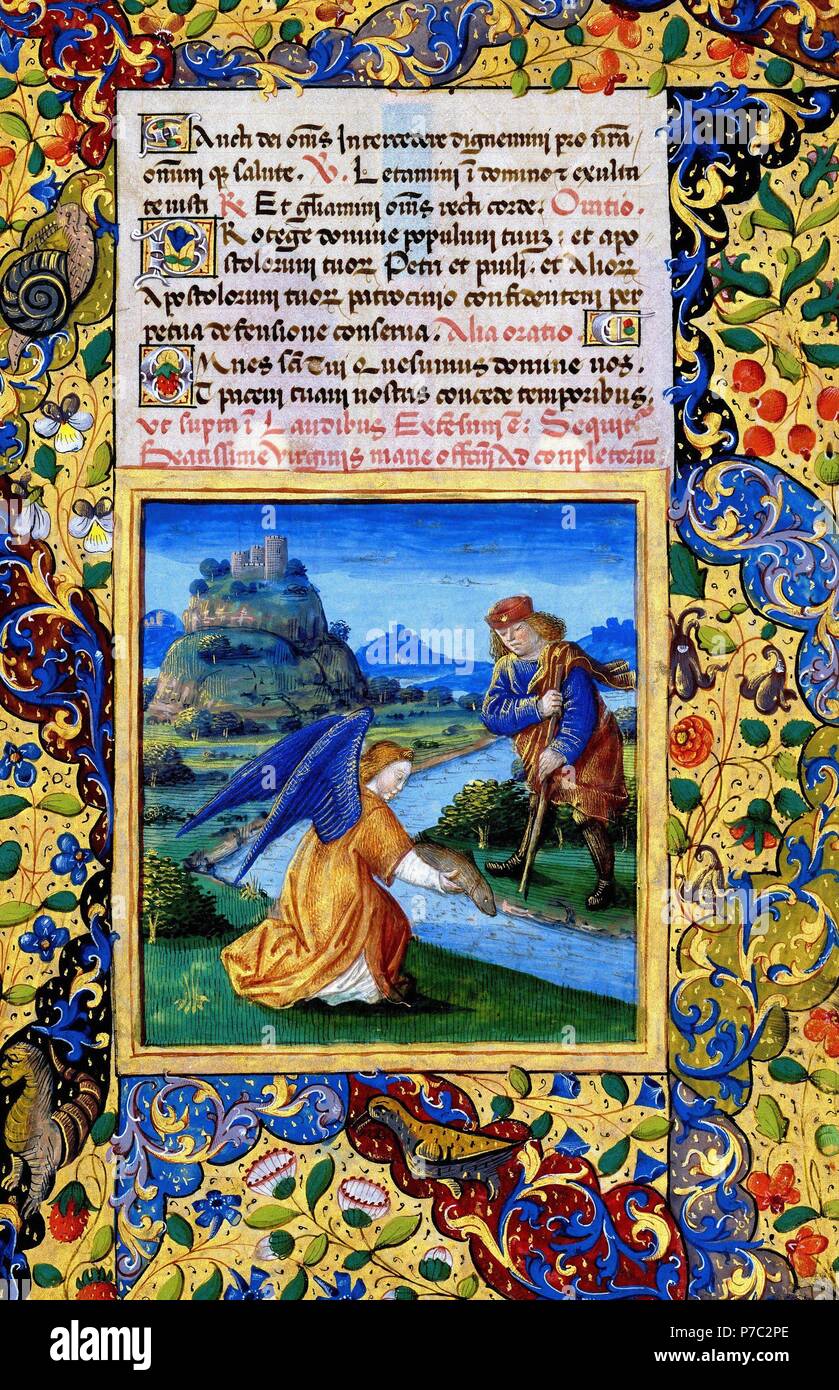 SAncti dei oms Intercedere dignemini pro nrа
omnium qз salute. V. Letamini ī domino ⁊ exulta
te iusti R Et gliamini oms recti corde. Oratio.
PRotege domine populum tuuз: et apo
stolorum tuorꝝ Petri et pauli: et Aliorꝝ
Apostolorum tuorꝝ patrocinio confidentem per
petua defensione conserua. Alia oratio
OMnes scti tui quesumus domine nos.
ET pacem tuam nostris concede temporibus.
Vt supra ī Laudibus Sequitr
Beatissime Virginis marie offcm Ad conpletorium
alamy
Image ID: P7C2PE
www.alamy.com